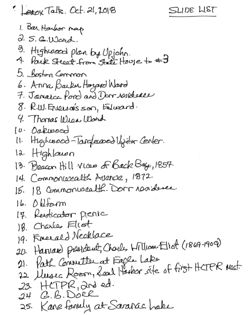 Lenox Talk. Oct. 21, 2018 SLIDE LIST
1. Bar Harbor map
2. S. G. Ward.
3. Highwood plan by Upjohn.
4. Park Street from State House to #3
5. Boston Common
6. Anna Barker Hazard Ward
7. Jamaica Pond and Dorr residence
8. R.W. Emerson's son, Edward.
9. Thomas Wren Ward
10. Oakwood
11. Highwood - Tanglewood Visitor Center.
12. Highlawn
13. Beacon Hill view of Back Bay, 1857
14. Commonwealth Avenue, 1872
15. 18 Commonwealth. Dorr residence
16. Oldfarm
17. Rusticator picnic
18. Charles Eliot
19. Emerald Necklace
20. Harvard president, Charles William Eliot (1869-1909)
21. Path Committee at Eagle Lake
22. Music Room, Seal Harbor site of first HCTPR mect.
23. HCTPR, 2nd ed.
24. G. B. DORR
25. Kane family at Saranac Lake